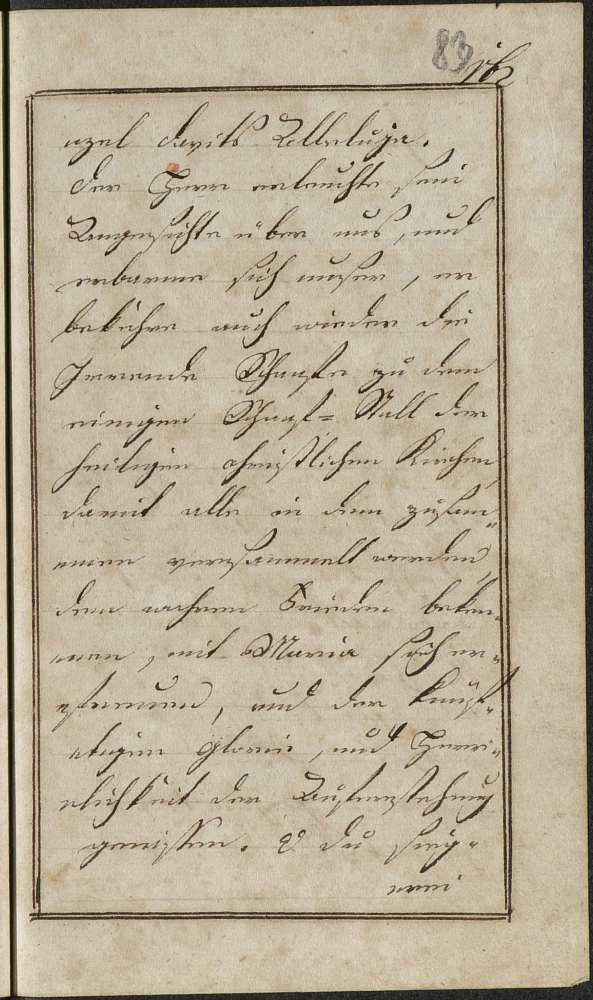 83
162
uzel Davits Alleluja.
der Herr erleuchte sein
Angesichte über uns, und
erbarme sich unser, er
bekehre auch wieder die
Irrende Schaafe zu dem
einigen Schaaf= Stall der
heiligen christlichen Kirchen,
damit alle in dem zusam„
men versammelt werden,
den wahren Frieden beken„
nen, mit Maria sich er„
efreuen, und der künf„
ftigen Glorie, und Herr„
rlichkeit der Auferstehung
geniessen. O du sieg„